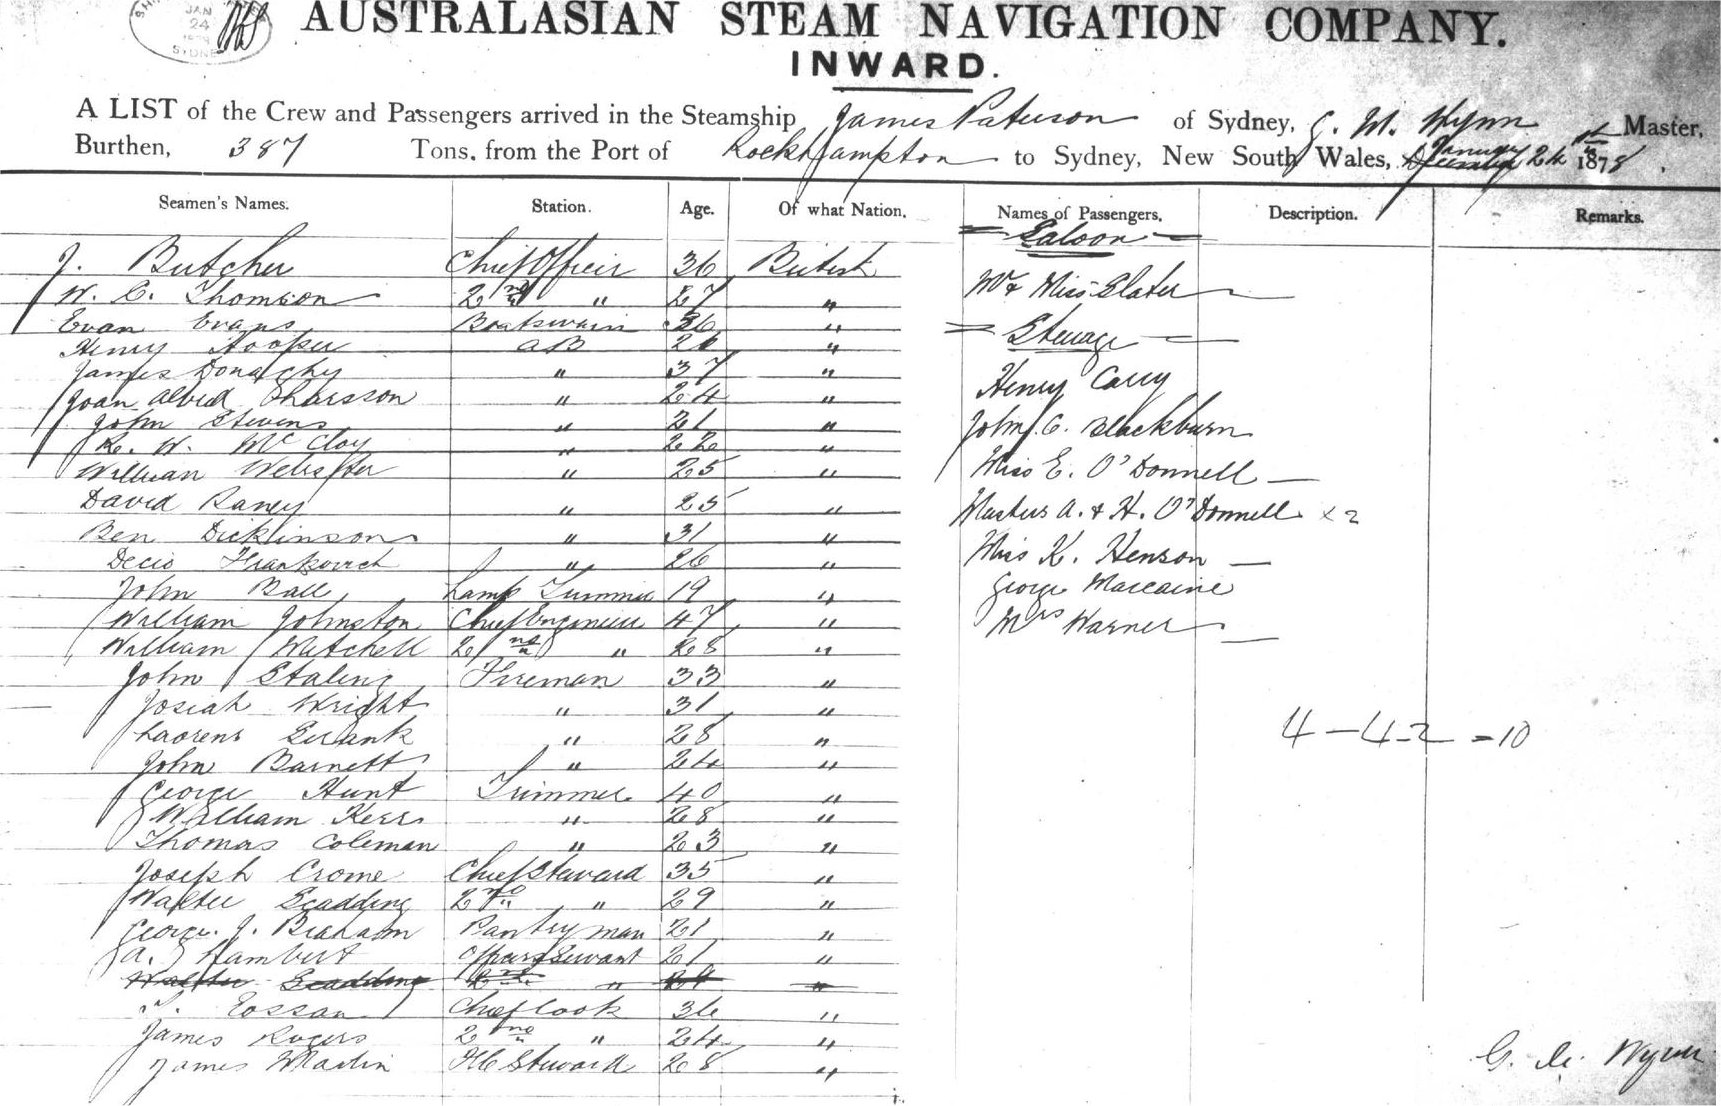 JAN
24
SYDNEY
AUSTRALASIAN STEAM NAVIGATION COMPANY.
INWARD.
A LIST of the Crew and Passengers arrived in the Steamship James Paterson of Sydney, G. M. Wynn Master,
Burthen, 387 Tons, from the Port of Rockhampton to Sydney, New South Wales, January 24th 1878.
Seamen's Names. Station. Age. Of what Nation. Names of Passengers. Description. Remarks.
= Saloon =
J. Butcher Chief Officer 36 British
Mr & Miss Slater
W. C. Thomson 2nd " 27 "
Evan Evans Boatswain 36 "
= Steerage =
Henry Hooper AB 26 "
James Donaghy " 37 "
Henry Carry
Joan Alfred " 24 "
John Stevens " 21 "
John C. Blackburn
R. W. McCloy " 22 "
William Webster " 25 "
Miss E. O'Donnell
David Raney " 25 "
Masters A. & H. O'Donnell x 2
Ben Dickinson " 31 "
Decio Frankovich " 26 "
Miss K. Henson
John Ball Lamp Trimmer 19 "
George Marcaine
William Johnston Chief Engineer 47 "
Mrs Warner
William Mitchell 2nd " 28 "
John Staling Fireman 33 "
Josiah Wright " 31 "
" 28 "
4 - 4 - 2 = 10
John Barnett " 24 "
George Hunt Trimmer 40 "
William Kerr " 28 "
Thomas Coleman " 23 "
Joseph Crome Chief Steward 35 "
Walter Scadding 2nd " 29 "
George J. Braham Pantryman 21 "
A. Lambert Officers Servant 21 "
Walter Scadding 2nd " 29 "
Chief Cook 36 "
James Rogers 2nd " 24 "
James Martin Steward 28 "
G. M. Wynn